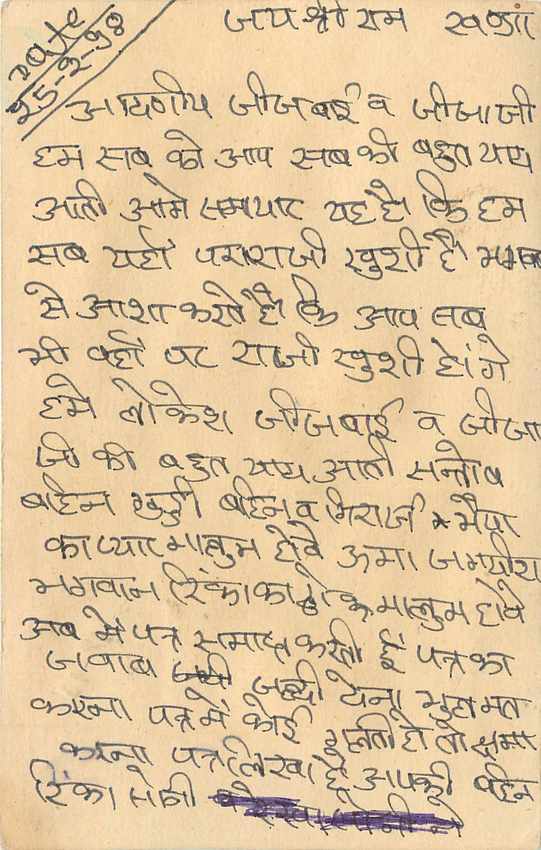 Date
25-2-98
जय श्री राम
आदरणीय जीजबाई व जीजाजी
हम सब को आप सब की बहुत याद
आती आगे समाचार यह है कि हम
सब यहाँ पर राजी खुशी है भगवान
से आशा करते है कि आप सब
भी वहाँ पर राजी खुशी होंगे
हमे लोकेश जीजबाई व जीजा
जी की बहुत याद आती सन्तोष
बहिन गुड्डी बहिन व गिरार्ज भैया
का प्यार मालुम होवे ऊमा जगदीश
भगवान रिंका का ढोक मालुम होवे
अब मे पत्र समाप्त करती हूँ पत्र का
जवाब जल्दी देना भूल मत
करना पत्र में कोई गलती हो तो क्षमा
करना पत्र लिखा है आपकी बहिन
रिंका सोनी